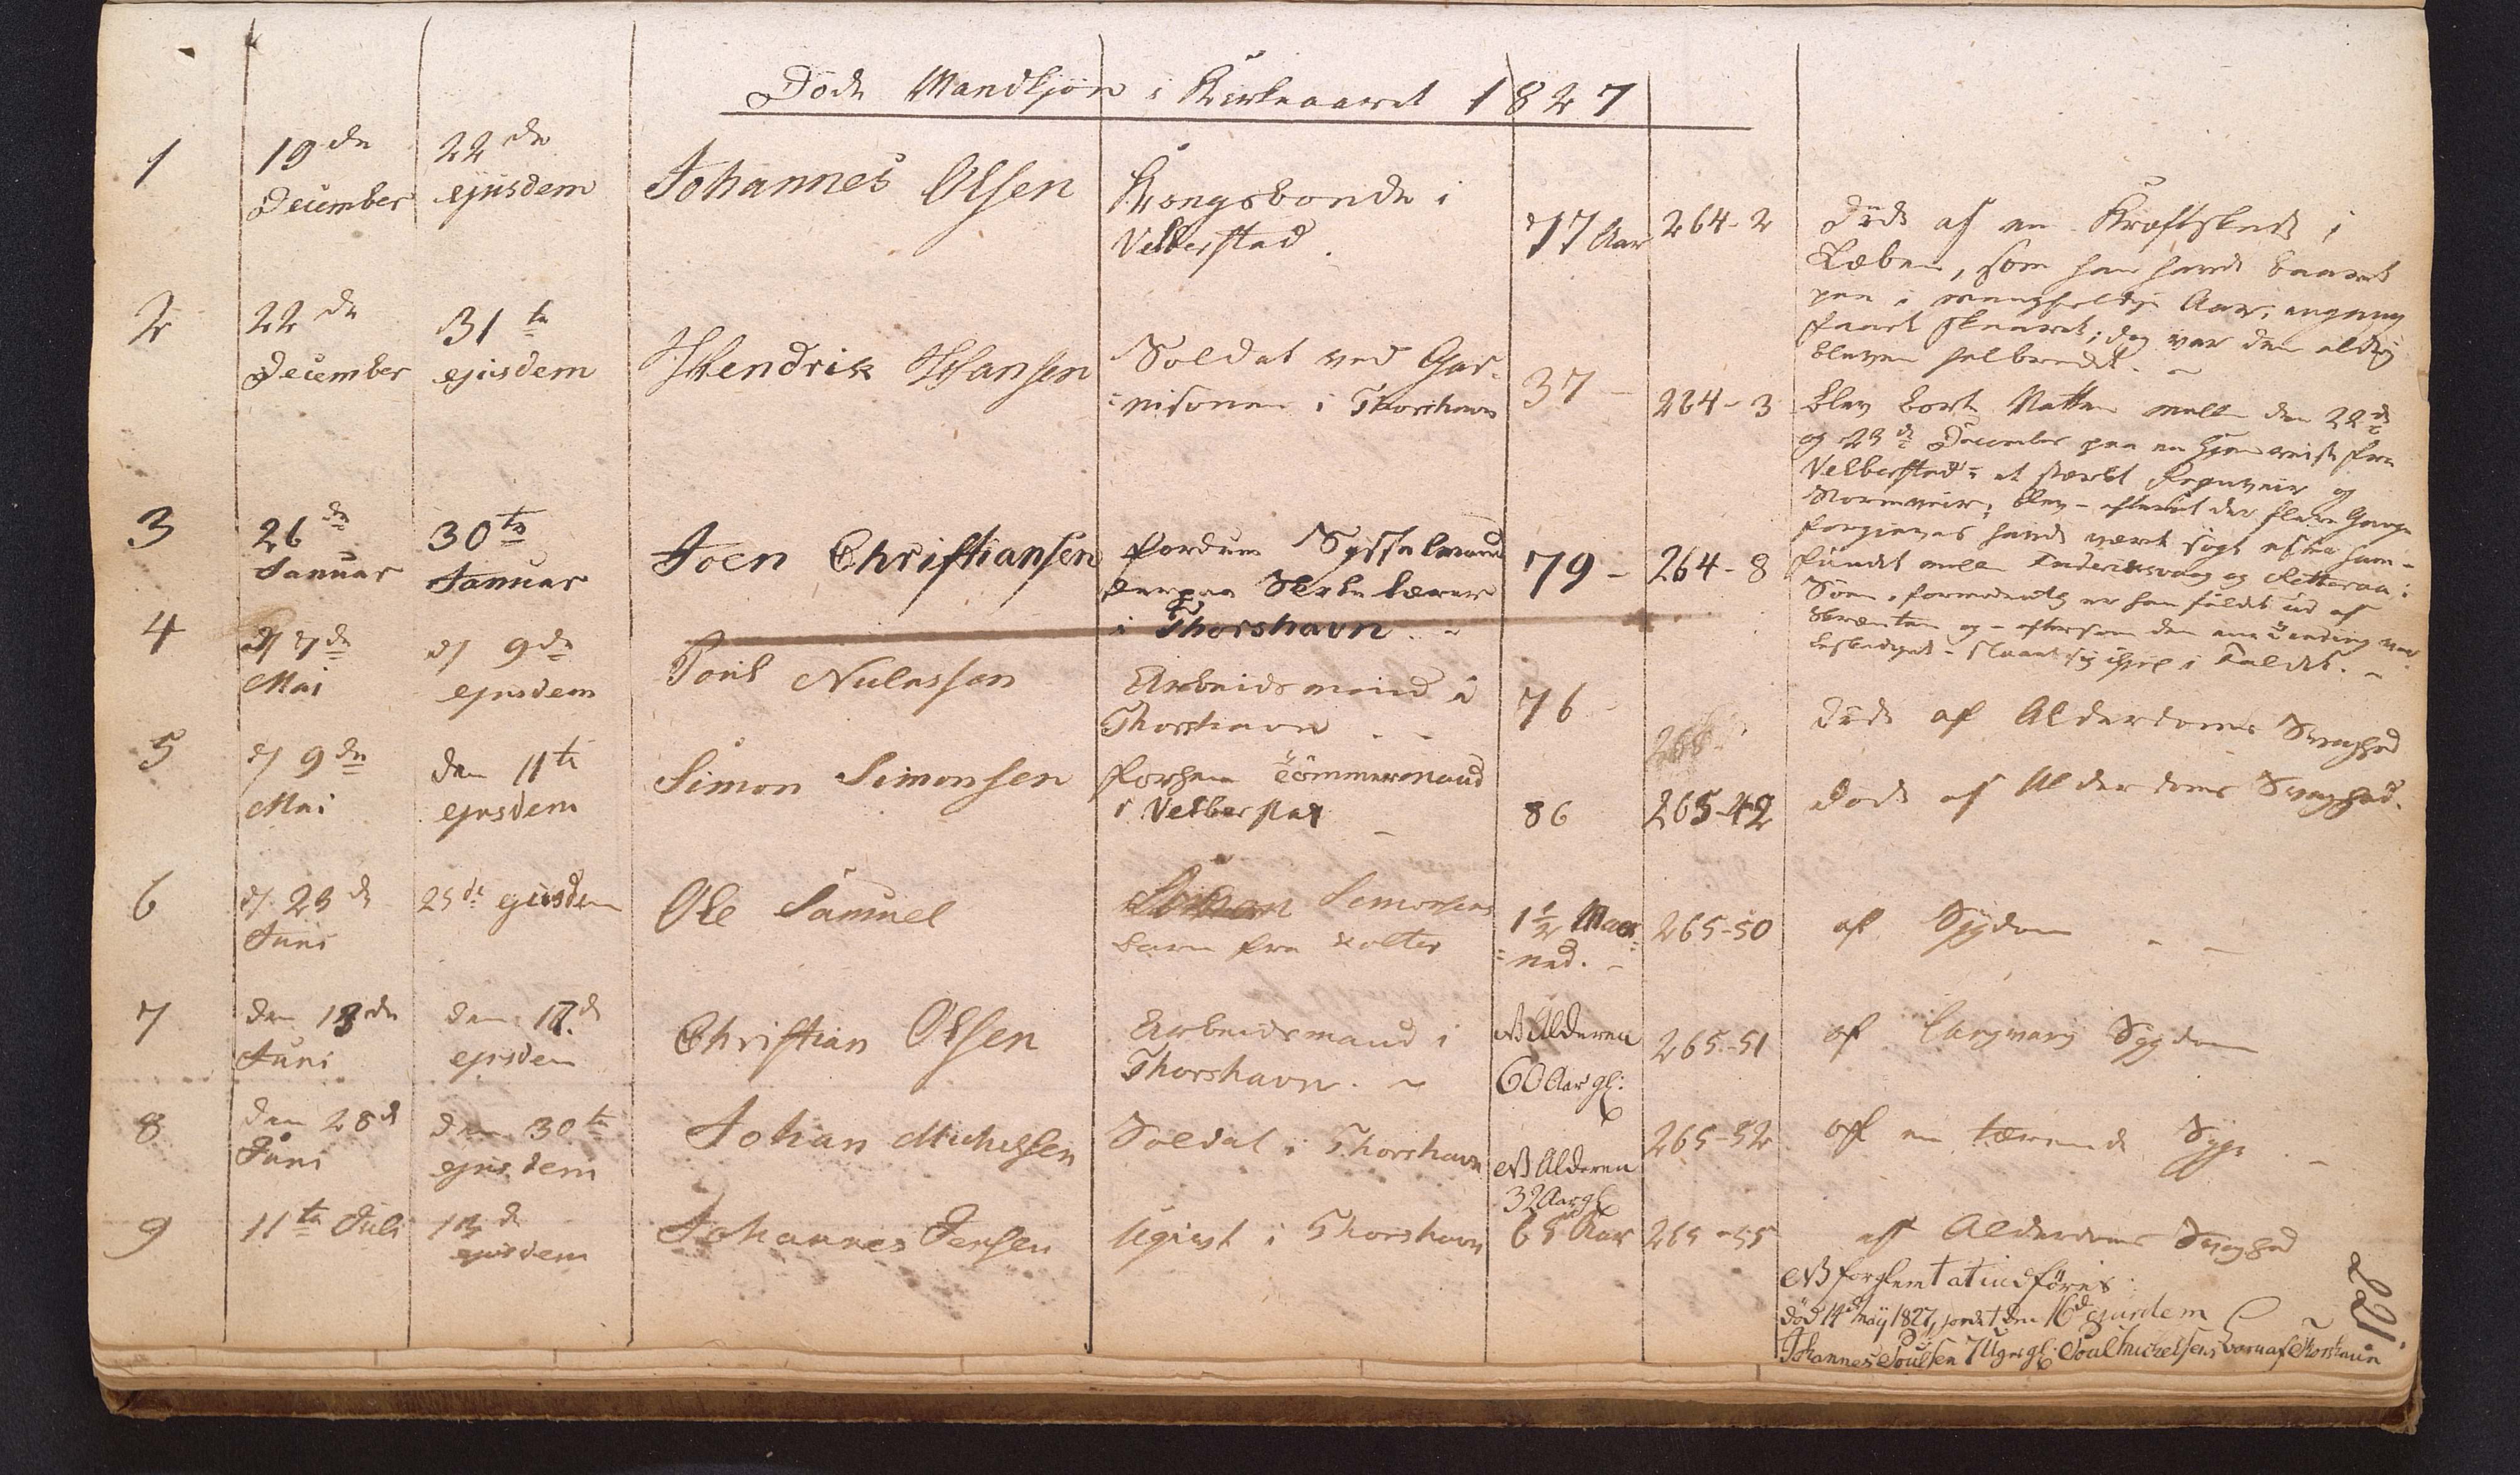 Döde Mandkjön i Kirkeaaret 1827
1
19de
December
22de
ejusdem
Johannes Olsen
Kongsbonde i
Velberstad.
77 Aar
264-2
Døde af en Kræftskade i
Læben, som han havde baaret
paa i mangfoldige Aar, engang
faaet skaaret; dog var den aldrig
bleven helbredet. -
2
22de
December
31te
ejusdem
Hendrik Hansen
Soldat ved Gar-
=nisonen i Thorshavn
37 -
264-3
Blev borte Natten mellem den 22de
og 23de December paa en Hjemreise fra
Velberstad i et stærkt Regnveir og
Stormveir; blev - efterat der flere Gange
forgjeves havde været søgt efter ham -
fundet mellem Frideriksvaag og
Søen. formodentlig er han faldet ud af
Skrænten og - eftersom den ene Tinding var
beskadiget - slaaet sig ihjel i Faldet. -
3
26de
Januar
30te
Januar
Joen Christiansen
fordum Sysselmand
derpaa Skolelærer
i Thorshavn. -
79 -
264-8
4
d/ 7de
Mai
d/ 9de
ejusdem
Poul
Arbeidsmand i
Thorshavn - -
76
Døde af Alderdoms Svaghed
5
d/ 9de
Mai
den 11te
ejusdem
Simon Simonsen
forhen Tömmermand
i Velberstad -
86
265-42
Døde af Alderdoms Svaghed.
6
d/ 23de
Juni
25de ejusdem
Ole Samuel
Simonsens
Barn fra Kolter
1½ Maa=
=ned. -
265-50
af Sygdom - -
7
den 13de
Juni
den 17de
ejusdem
Christian Olsen
Arbeidsmand i
Thorshavn. -
NB Alderen
60 Aar gl:
265-51
af Langvarig Sygdom
8
den 28de
Juni
den 30te
ejusdem
Johan Michelsen
Soldat i Thorshavn
NB Alderen
32 Aar gl:
265-52
Af en tærende Syge. -
9
11te Juli
13de
ejusdem
Johannes Jensen
Ugivt i Thorshavn
65 Aar
265-55
af Alderdoms Svaghed
NB forglemt at indföres:
död 14de Maÿ 1827, jordet den 16de ejusdem
Johannes Poulsen 7 Uger gl: Poul Michelsens Barn af Thorshavn